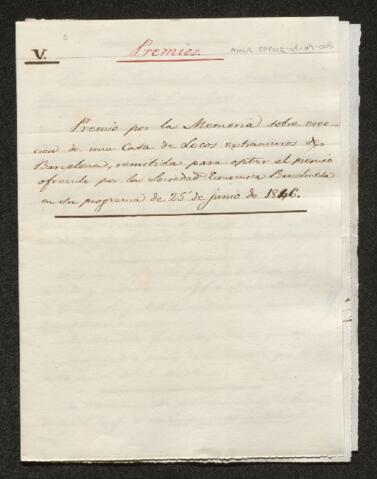 V.
Premios.
Premio por la Memoria sobre erec-
cion de una Casa de Locos extramuros de
Barcelona, remitida para optar al premio
ofrecido por la Sociedad Economica Barcelonesa
en su programa de 25 de junio de 1846.